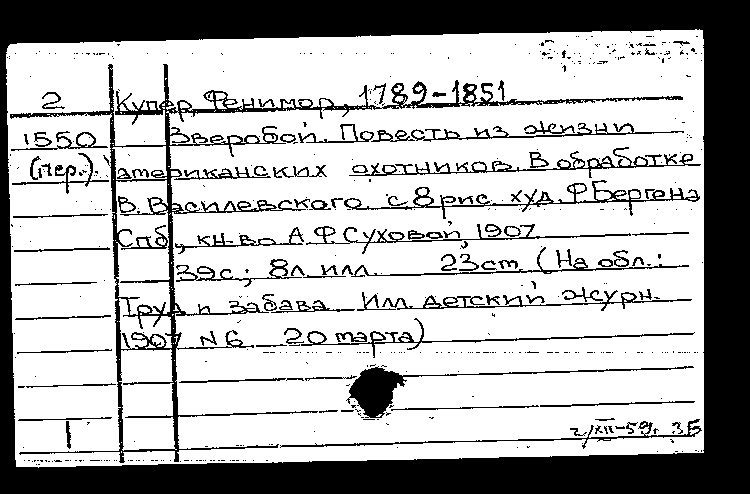 2 Купер, Фенимор, 1789-1851.
1550 Зверобой. Повесть из жизни
(пер.). американских охотников. В обработке
В. Василевского. с 8 рис. худ. Р. Бергена
Спб., кн-во А.Ф. Суховой, 1907
39с.; 8л. илл. 23cm. (На обл.:
Труд и забава. Илл. детский журн.
1907 N 6 20 марта)
2/XII-59г. ЗБ